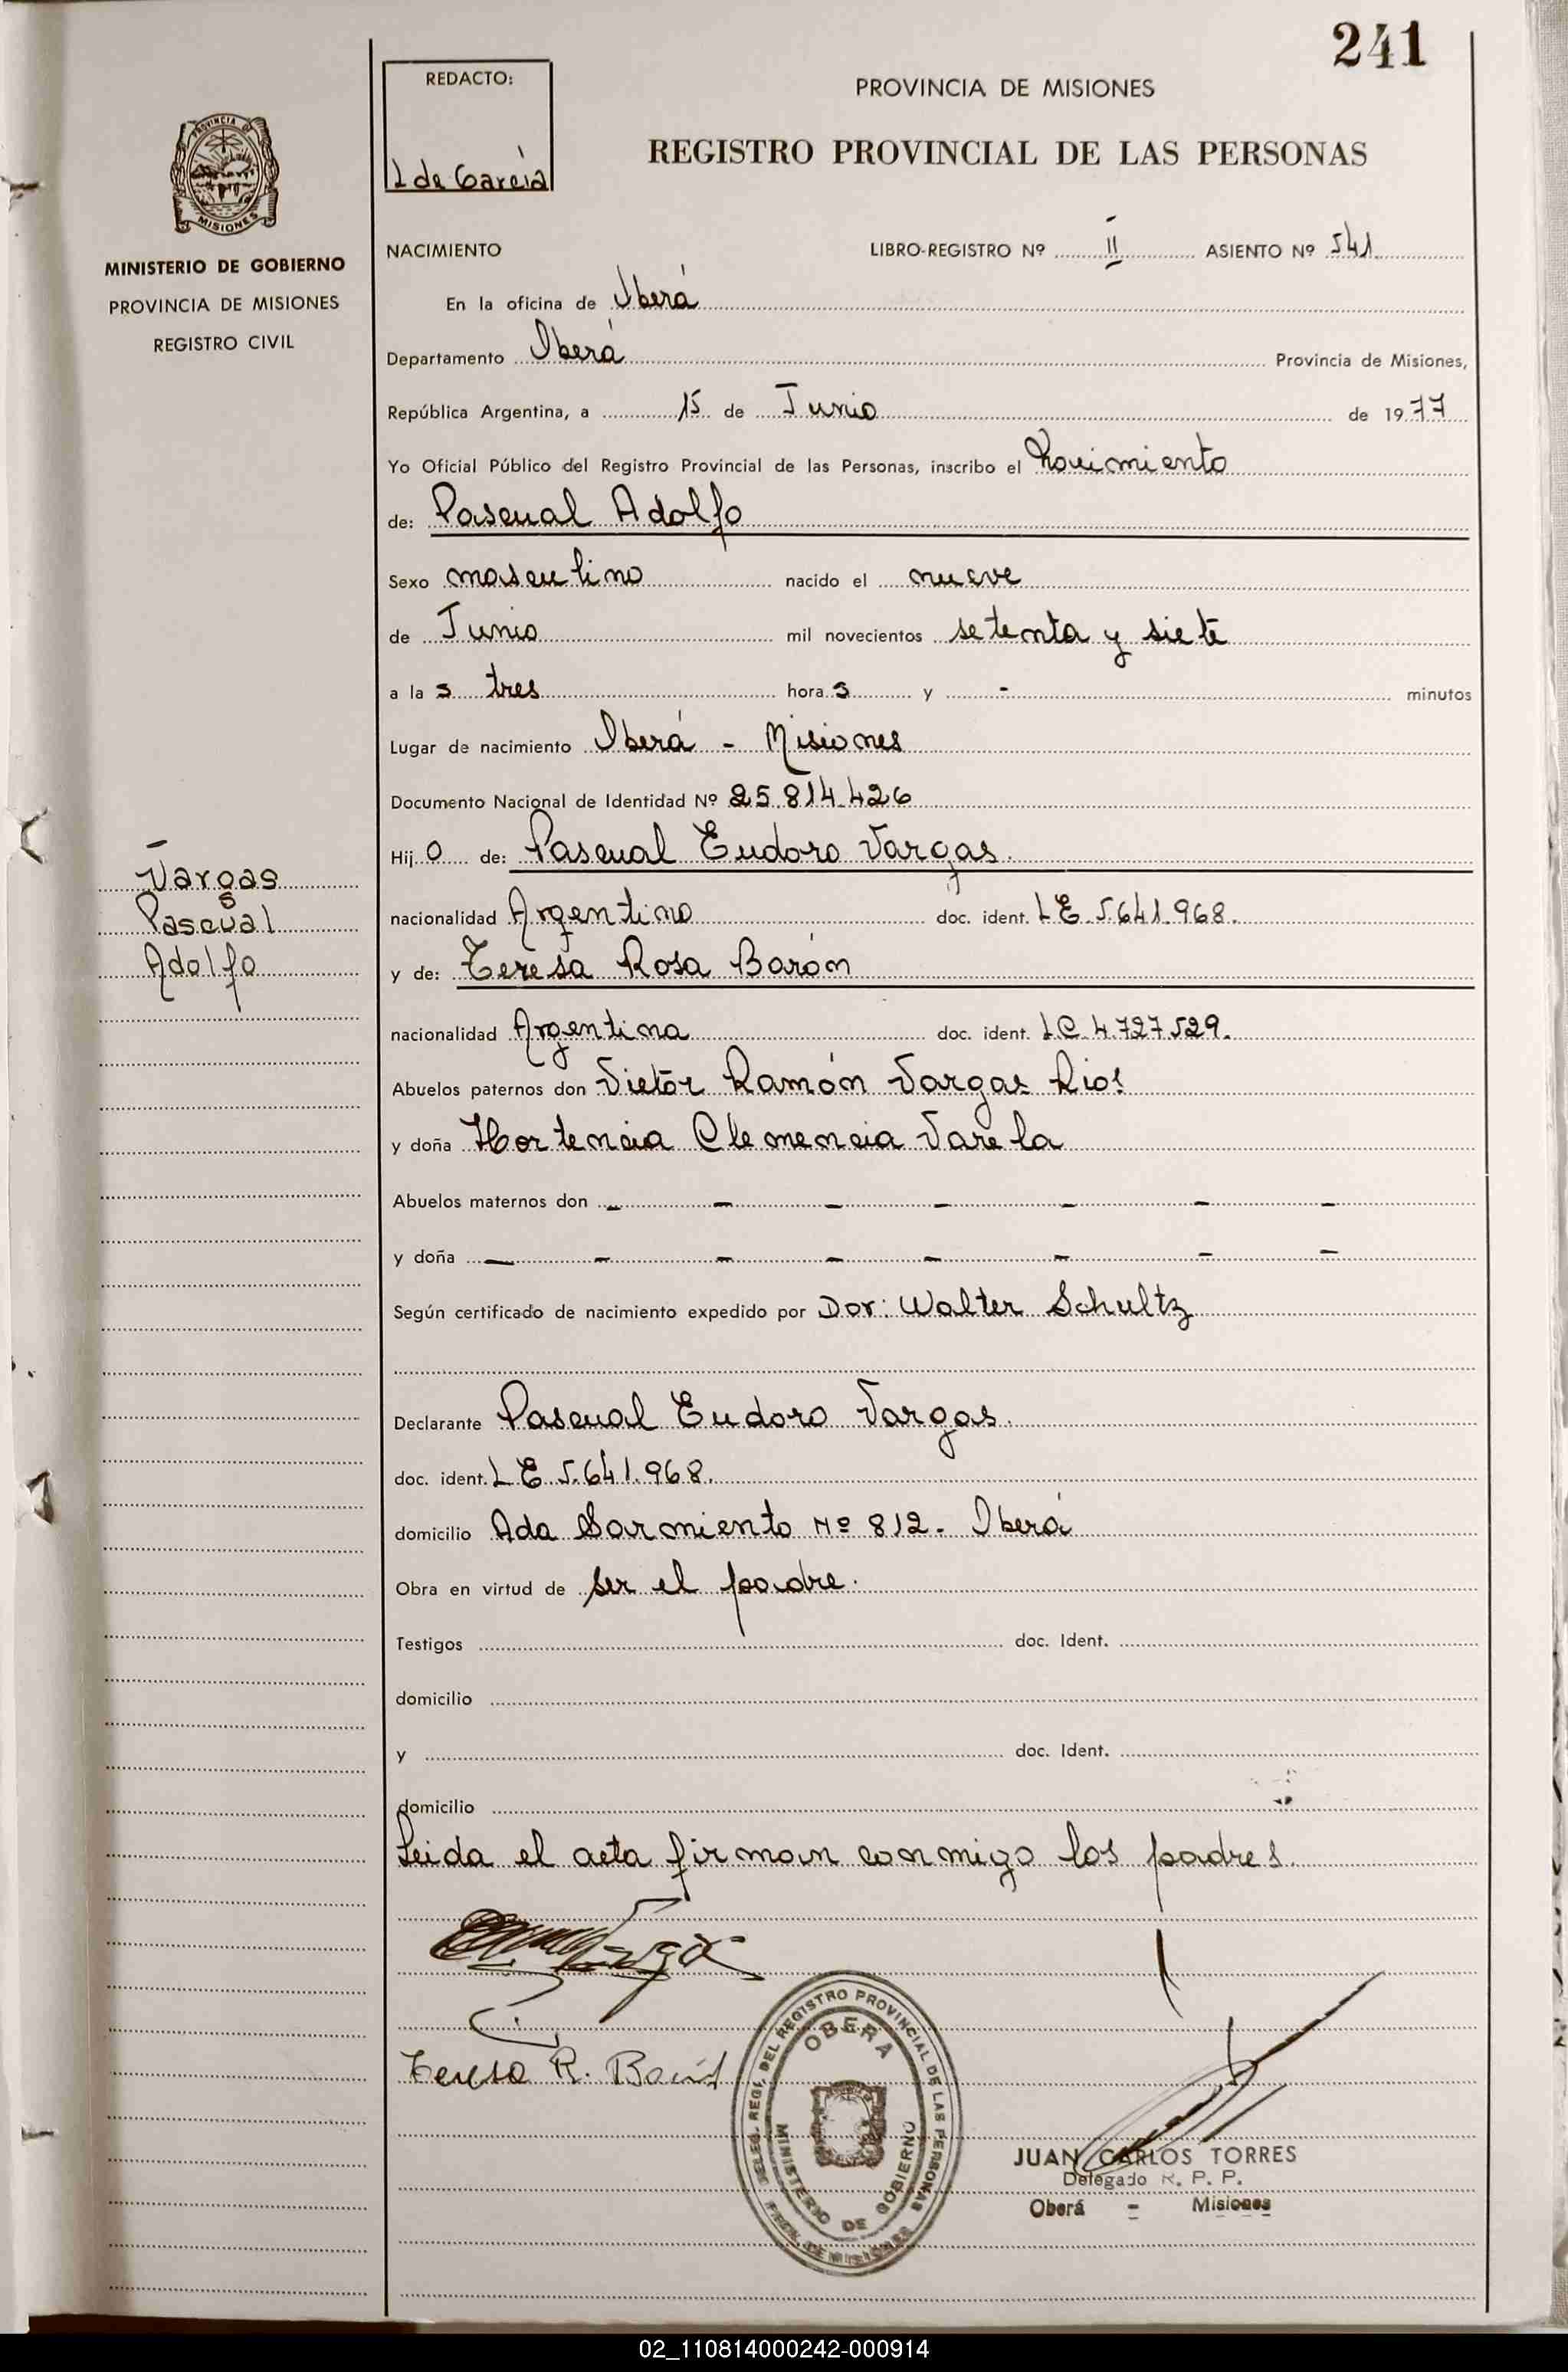 241
REDACTO:
L de García
PROVINCIA DE MISIONES
REGISTRO PROVINCIAL DE LAS PERSONAS
PROVINCIA DE
MISIONES
MINISTERIO DE GOBIERNO
PROVINCIA DE MISIONES
REGISTRO CIVIL
NACIMIENTO LIBRO-REGISTRO Nº II ASIENTO Nº 541
En la oficina de Oberá
Departamento Oberá Provincia de Misiones,
República Argentina, a 15 de Junio de 1977
Yo Oficial Público del Registro Provincial de las Personas, inscribo el Nacimiento
de: Pascual Adolfo
Sexo masculino nacido el nueve
de Junio mil novecientos setenta y siete
a la s tres hora s y - minutos
Lugar de nacimiento Oberá - Misiones
Documento Nacional de Identidad Nº 25.814.426
Hij o de: Pascual Eudoro Vargas.
Vargas
Pascual
Adolfo
nacionalidad Argentino doc. ident. LE 5.641.968.
y de: Teresa Rosa Barón
nacionalidad Argentina doc. ident. LC 4.727.529.
Abuelos paternos don Victor Ramón Vargas Rios
y doña Hortencia Clemencia Varela
Abuelos maternos don - - - - - - -
y doña - - - - - - - -
Según certificado de nacimiento expedido por Dor: Walter Schultz
Declarante Pascual Eudoro Vargas.
doc. ident. LE 5.641.968.
domicilio Ada Sarmiento Nº 812. Oberá
Obra en virtud de ser el padre.
Testigos doc. Ident.
domicilio
y doc. Ident.
domicilio
Leida el acta firman conmigo los padres.
Teresa R.
REGISTRO PROVINCIAL DE LAS PERSONAS
OBERA
MINISTERIO DE GOBIERNO
JUAN CARLOS TORRES
Delegado R. P. P.
Oberá - Misiones
02_110814000242-000914